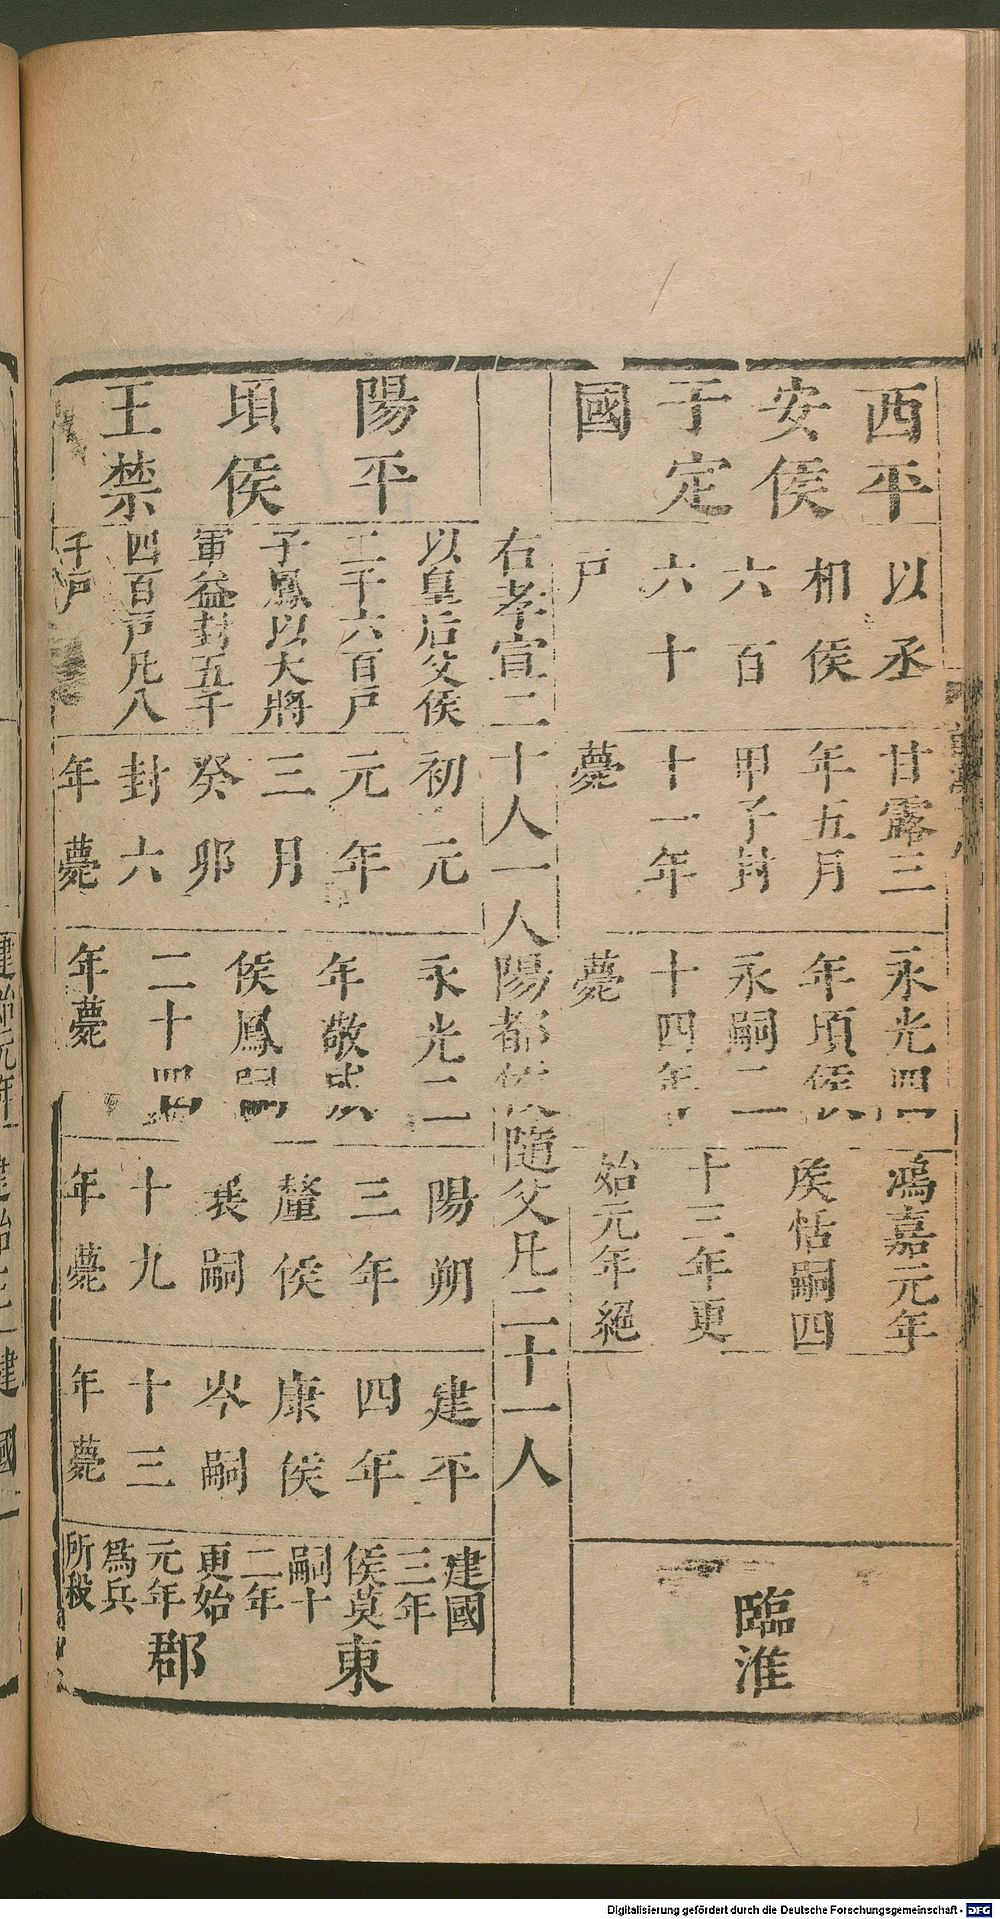 西平
安侯
于定
國
以丞
相侯
六百
六十
戸
甘露三
年五月
甲子封
十一年
薨
永光四
年頃侯
永嗣二
十四年
薨
鴻嘉元年
侯恬嗣四
十三年更
始元年絕
臨淮
右孝宣二十人一人陽都侯隨父凡二十一人
陽平
頃侯
王禁
以皇后父侯
二千六百戸
子鳳以大將
軍益封五千
四百戸凡八
千戸
初元
元年
三月
癸卯
封六
年薨
永光二
年敬成
侯鳳嗣
二十四
年薨
陽朔
三年
釐侯
襄嗣
十九
年薨
建平
四年
康侯
岑嗣
十三
年薨
建國
三年
侯莫
嗣十
二年
更始
元年
爲兵
所殺
東
郡
Digitalisierung gefördert durch die Deutsche Forschungsgemeinschaft - DFG